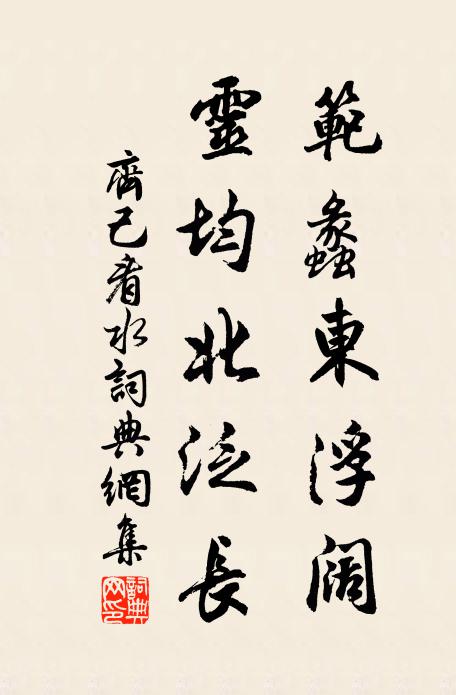 範蠡東浮闊
靈均北泛長
齊己看水詞典網集
詞典網印